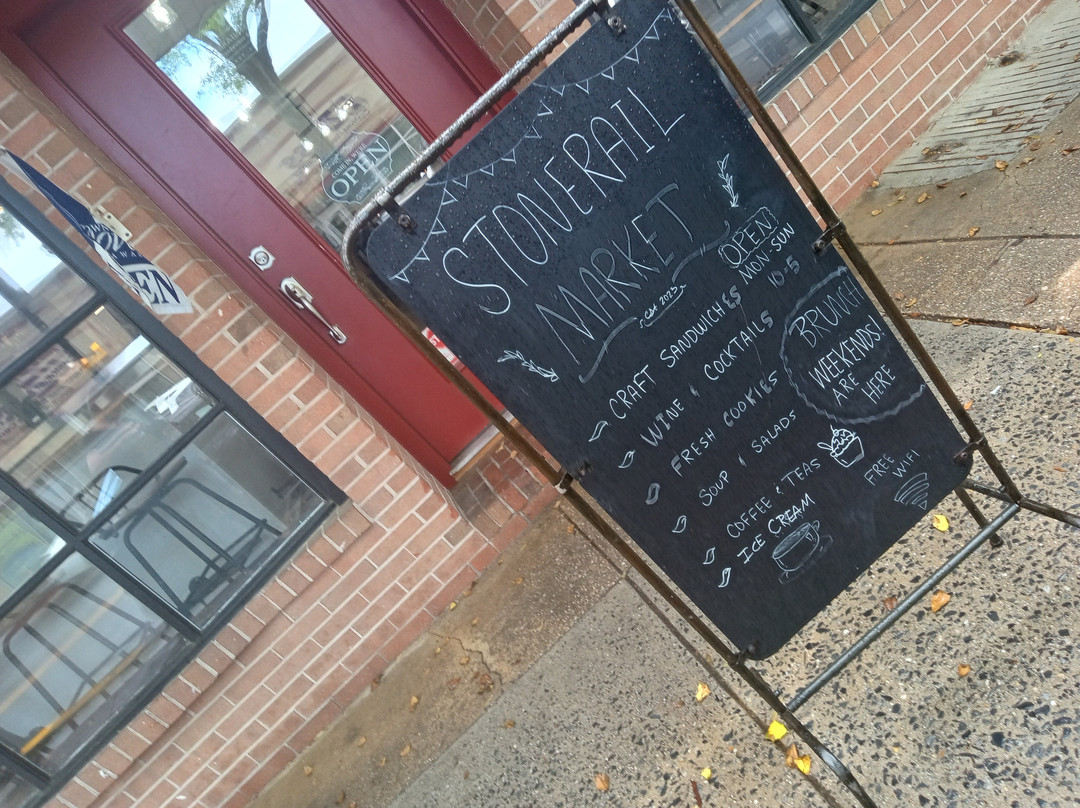 STONERAIL
MARKET
EST 2023
OPEN!
MON-SUN
10-5
CRAFT SANDWICHES
WINE & COCKTAILS
FRESH COOKIES
SOUP & SALADS
COFFEE & TEAS
ICE CREAM
BRUNCH
WEEKENDS!
ARE
HERE
FREE
WIFI
OPEN